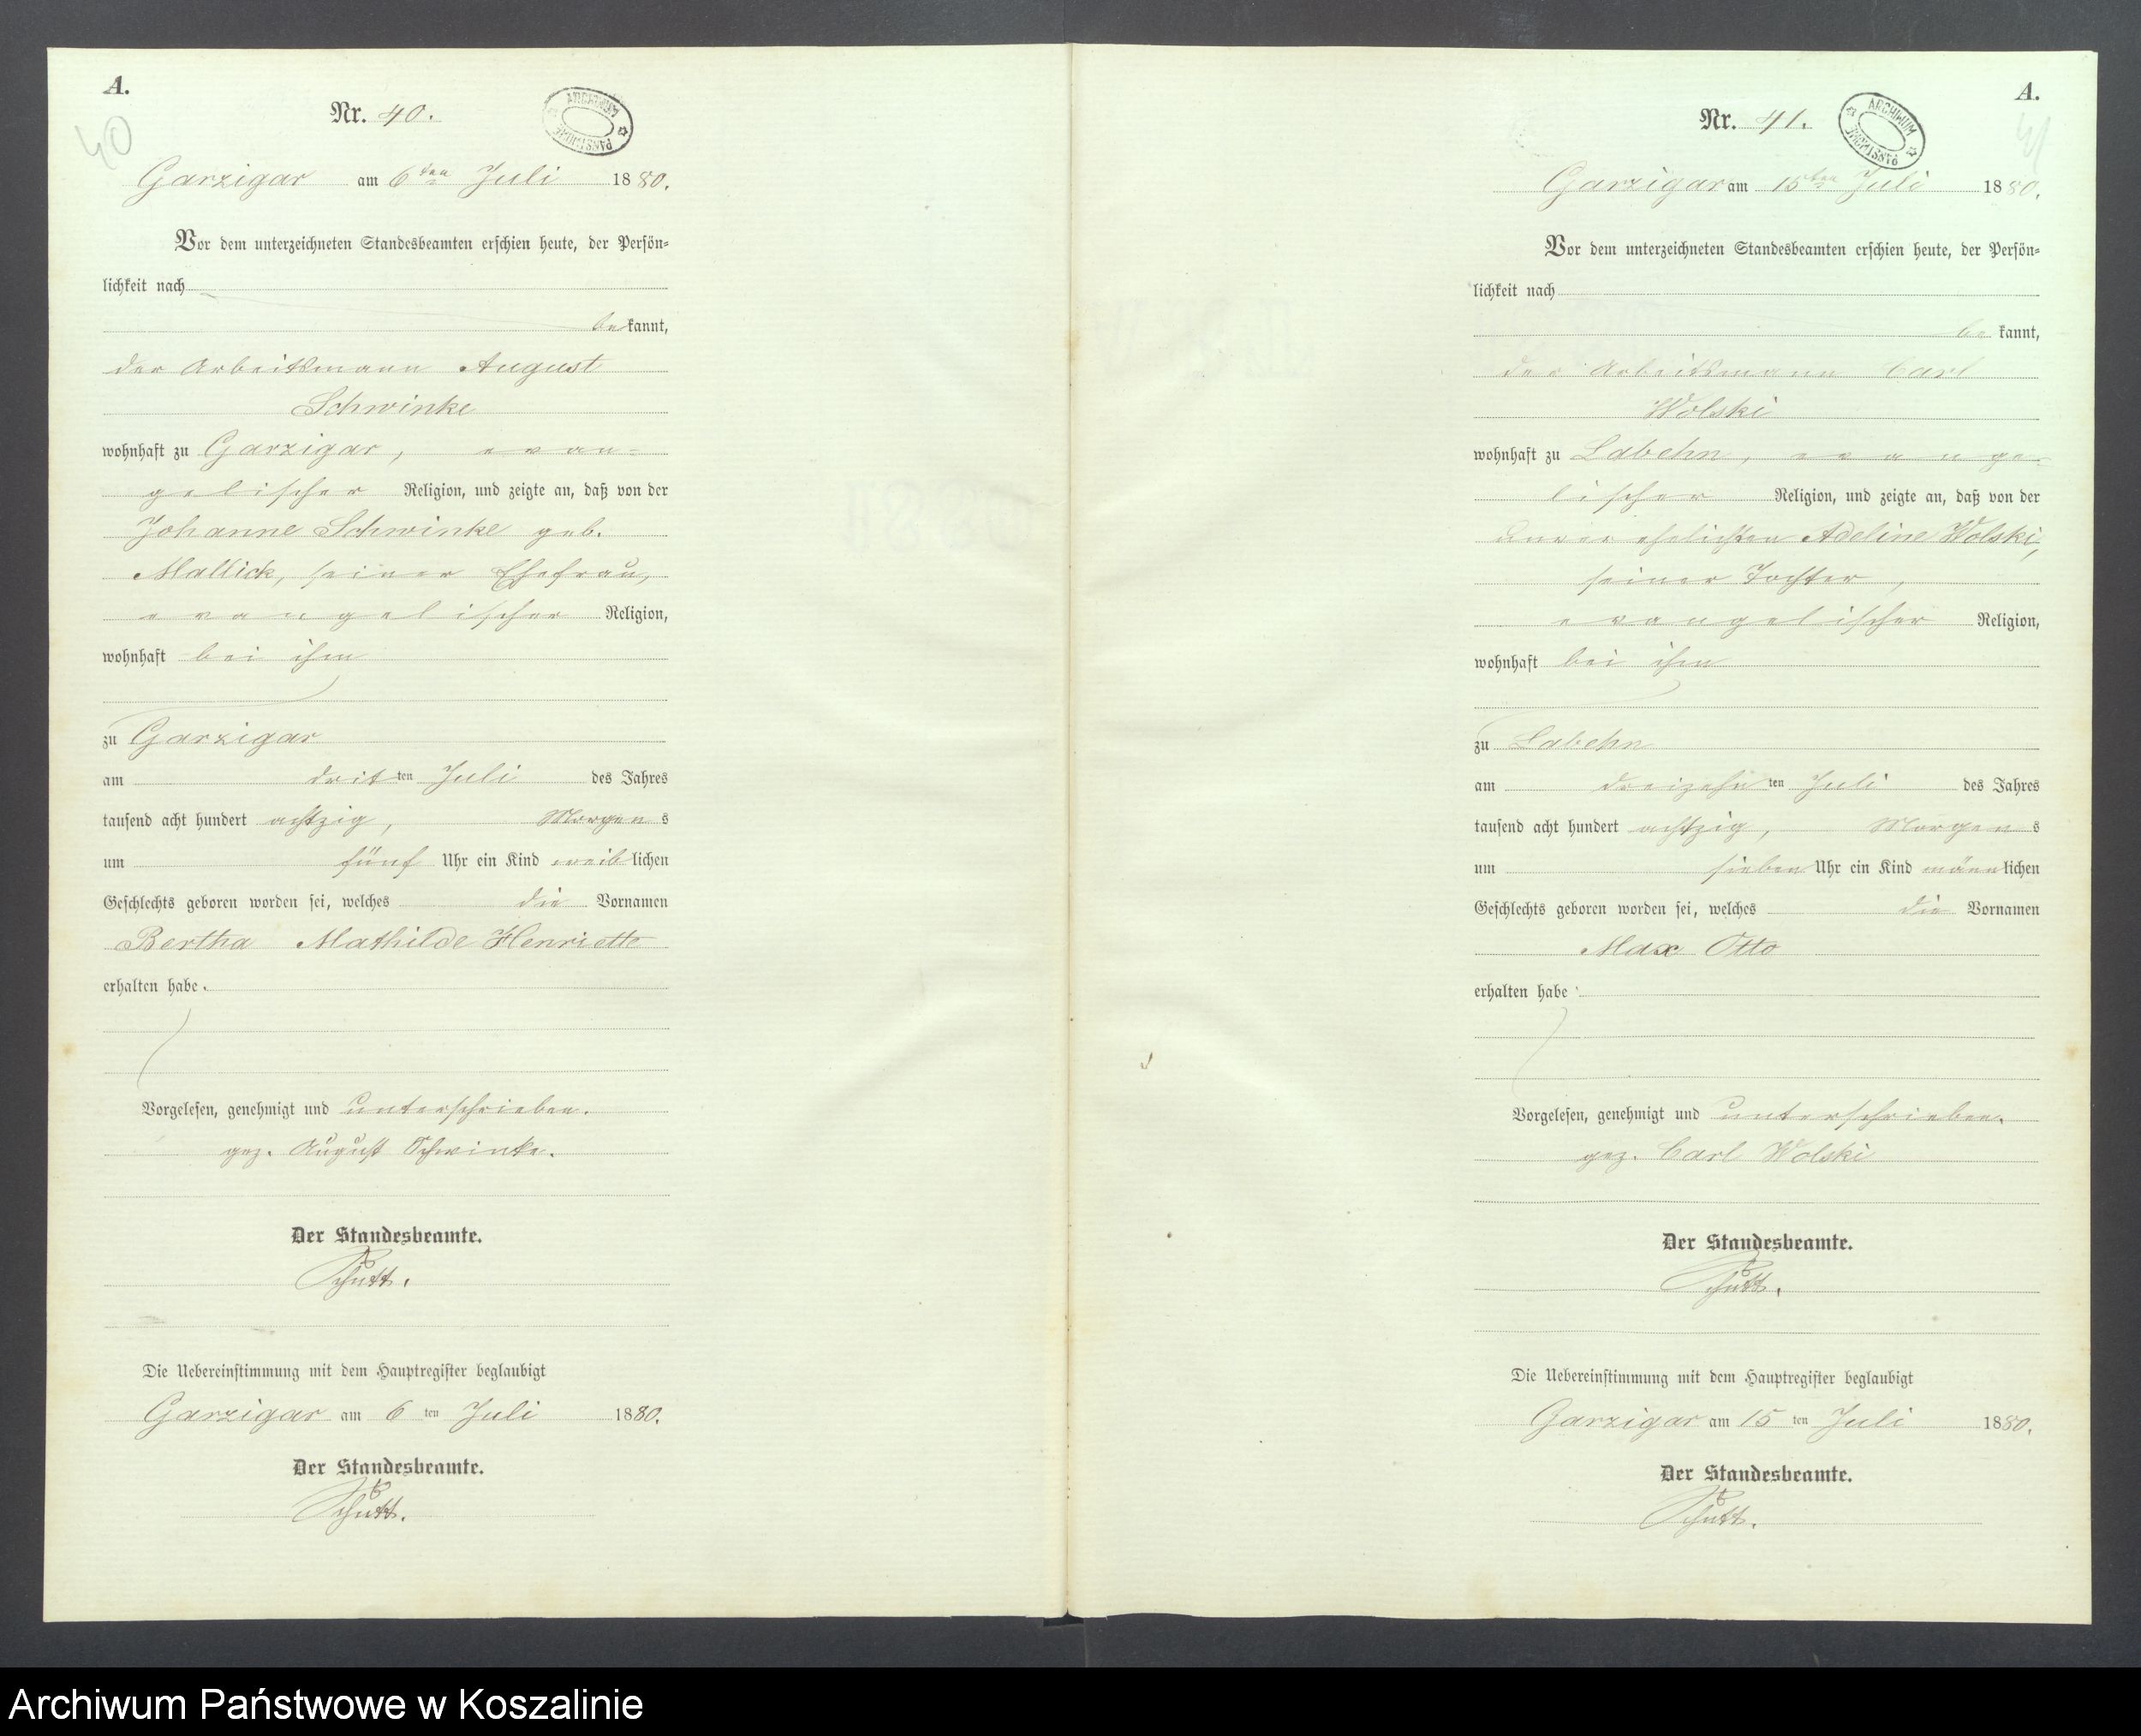 A.
40
Nr. 40.
ARCHIWUM PAŃSTWOWE
Garzigar am 6ten Juli 1880.
Vor dem unterzeichneten Standesbeamten erschien heute, der Persön-
lichkeit nach
bekannt,
der Arbeitsmann August
Schwinke
wohnhaft zu Garzigar, evan-
gelischer Religion, und zeigte an, daß von der
Johanne Schwinke geb.
Mallick, seiner Ehefrau,
evangelischer Religion,
wohnhaft bei ihm
zu Garzigar
am dritten Juli des Jahres
tausend acht hundert achtzig, Morgens
um fünf Uhr ein Kind weiblichen
Geschlechts geboren worden sei, welches die Vornamen
Bertha Mathilde Henriette
erhalten habe.
Vorgelesen, genehmigt und unterschrieben.
gez. August Schwinke.
Der Standesbeamte.
Schütt.
Die Uebereinstimmung mit dem Hauptregister beglaubigt
Garzigar am 6ten Juli 1880.
Der Standesbeamte.
Schütt.
A.
41
Nr. 41.
ARCHIWUM PAŃSTWOWE
Garzigar am 15ten Juli 1880.
Vor dem unterzeichneten Standesbeamten erschien heute, der Persön-
lichkeit nach
bekannt,
der Arbeitsmann Carl
Wolski
wohnhaft zu Labehn, evange-
lischer Religion, und zeigte an, daß von der
unverehelichten Adeline Wolski,
seiner Tochter,
evangelischer Religion,
wohnhaft bei ihm
zu Labehn
am dreizehnten Juli des Jahres
tausend acht hundert achtzig, Morgens
um sieben Uhr ein Kind männlichen
Geschlechts geboren worden sei, welches die Vornamen
Max Otto
erhalten habe.
Vorgelesen, genehmigt und unterschrieben.
gez. Carl Wolski
Der Standesbeamte.
Schütt.
Die Uebereinstimmung mit dem Hauptregister beglaubigt
Garzigar am 15ten Juli 1880.
Der Standesbeamte.
Schütt.
Archiwum Państwowe w Koszalinie